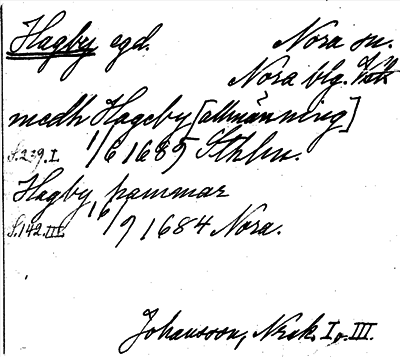 Hagby egd. Nora sn.
Nora blg. Vstm
medh Hageby [allmänning]
S. 239. I. 1/6 1685 Sthlm.
Hagby, hammar
S. 142. III. 16/9 1684 Nora.
Johansson, Norask. I o. III.